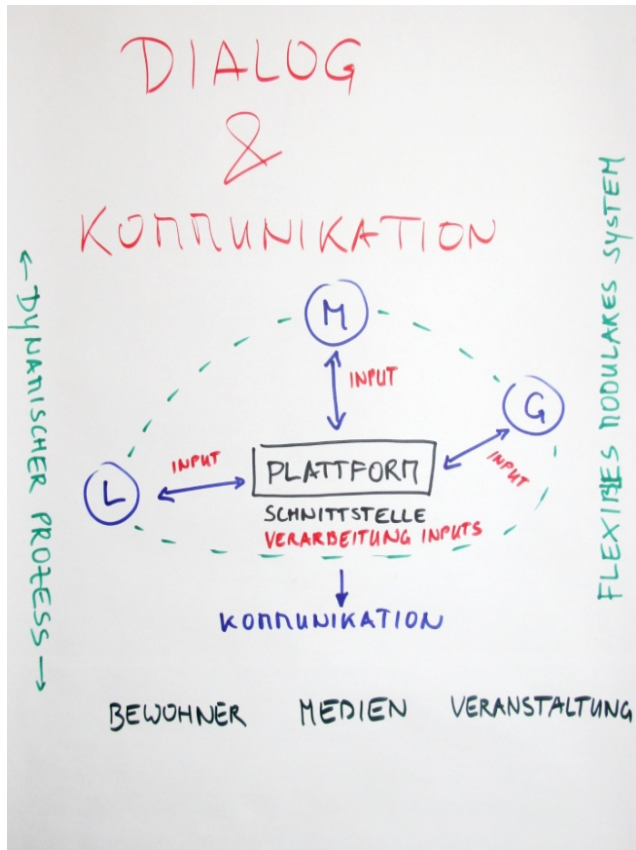 DIALOG
&
KOMMUNIKATION
← DYNAMISCHER PROZESS →
FLEXIBLES MODULARES SYSTEM
M
INPUT
G
INPUT
INPUT
L
PLATTFORM
SCHNITTSTELLE
VERARBEITUNG INPUTS
KOMMUNIKATION
BEWOHNER MEDIEN VERANSTALTUNG